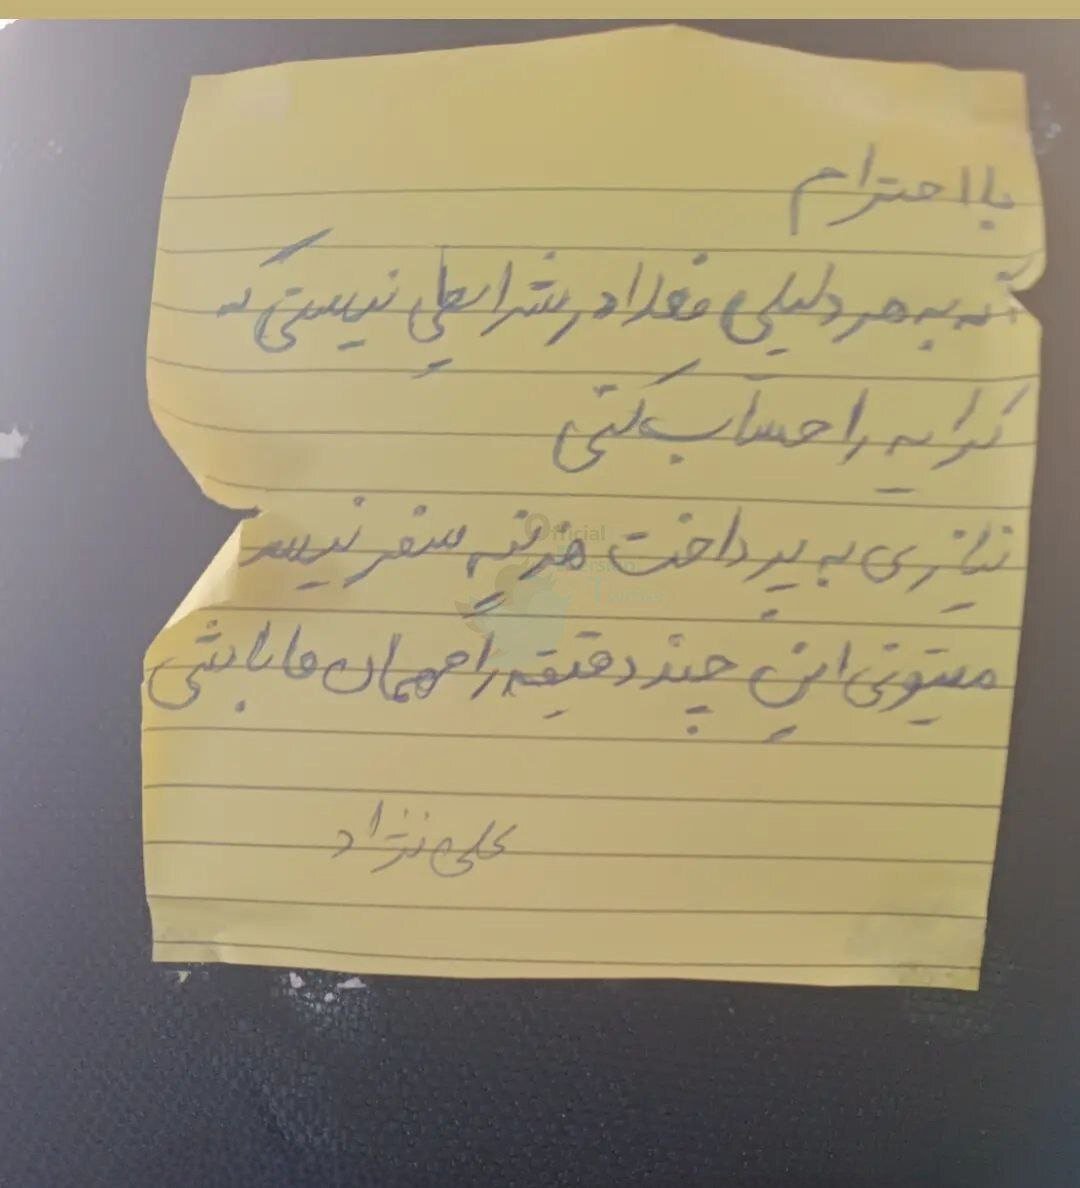 با احترام
اگه به هر دلیلی فعلا در شرایطی نیستی که
کرایه را حساب کنی
نیازی به پرداخت هزینه سفر نیست
میتونی این چند دقیقه را مهمان ما باشی
علی نژاد
Official
Persian
Twitter